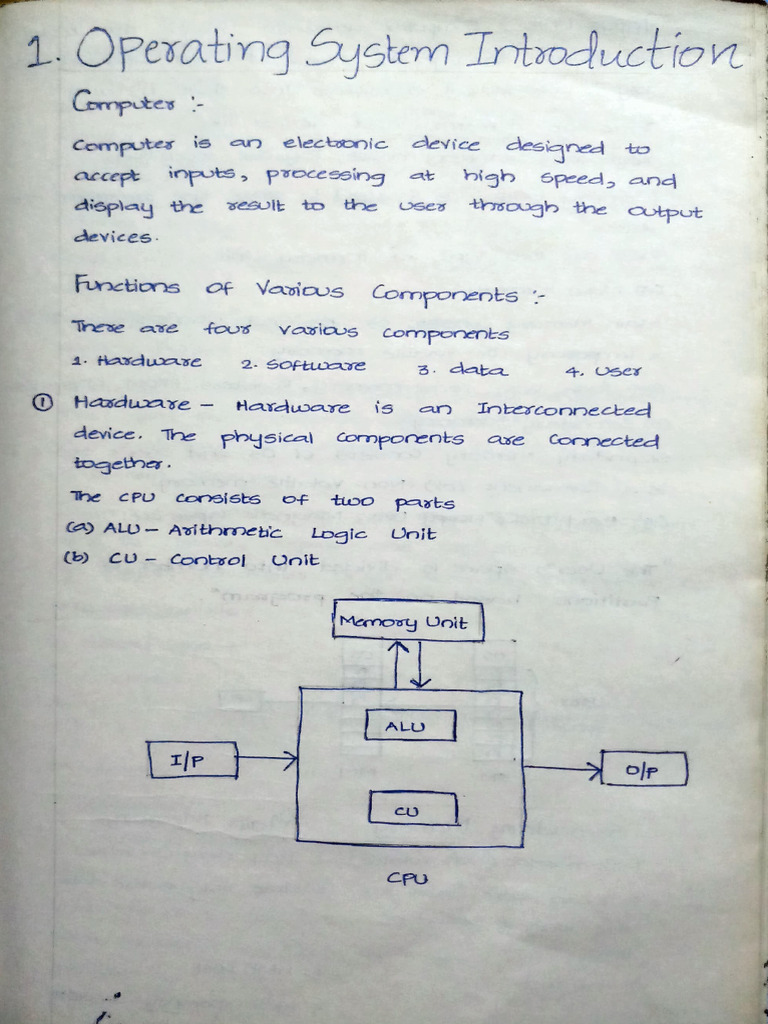 1. Operating System Introduction
Computer :-
Computer is an electronic device designed to
accept inputs, processing at high speed, and
display the result to the user through the output
devices.
Functions of Various Components :-
There are four various components
1. Hardware 2. software 3. data 4. user
① Hardware - Hardware is an Interconnected
device. The physical components are connected
together.
The CPU consists of two parts
(a) ALU - Arithmetic Logic Unit
(b) CU - Control Unit
Memory Unit
ALU
I/P
O/P
CU
CPU